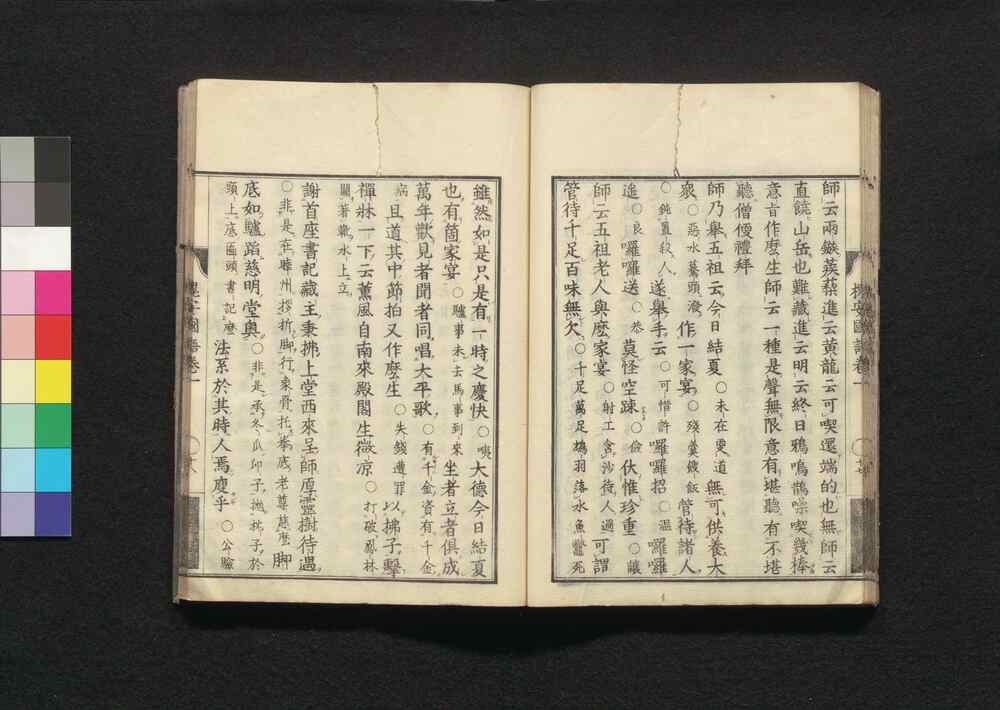 師云兩鏃蒺蔾進云黃龍云可喫還端的也無師云
直饒山岳也難藏進云明云終日鴉鳴鵲噪喫幾棒
意旨作麼生師云一種是聲無限意有堪聽有不堪
聽僧便禮拜
師乃舉五祖云今日結夏○未在更道無可供養大
衆○惡水驀頭潑作一家宴○殘羹餿飯管待諸人
○鈍置殺人遂舉手云○可惜許囉囉招○溫囉囉
遙○良囉囉送○恭莫怪空踈○儉伏惟珍重○讓
師云五祖老人與麼家宴○射工含沙待人過可謂
管待十足百味無欠○千足萬足鴆羽落水魚鼈死
槐安國語卷一
雖然如是只是有一時之慶快○㘞大德今日結夏
也有箇家宴○驢事未去馬事到來坐者立者俱成
萬年歡見者聞者同唱大平歌○有千金資有千金
病且道其中節拍又作麼生○失錢遭罪以拂子擊
禪牀一下云薰風自南來殿閣生微凉○打破鳳林
關著靴水上立
謝首座書記藏主秉拂上堂西來呈師厚靈樹待遇
○非是在睦州拶折脚行象骨托拳底老尊慈麼脚
底如驢蹈慈明堂奧○非是承冬瓜印子抛枕子於
頭上底匾頭書記麼法系於其時人焉廋乎○公驗